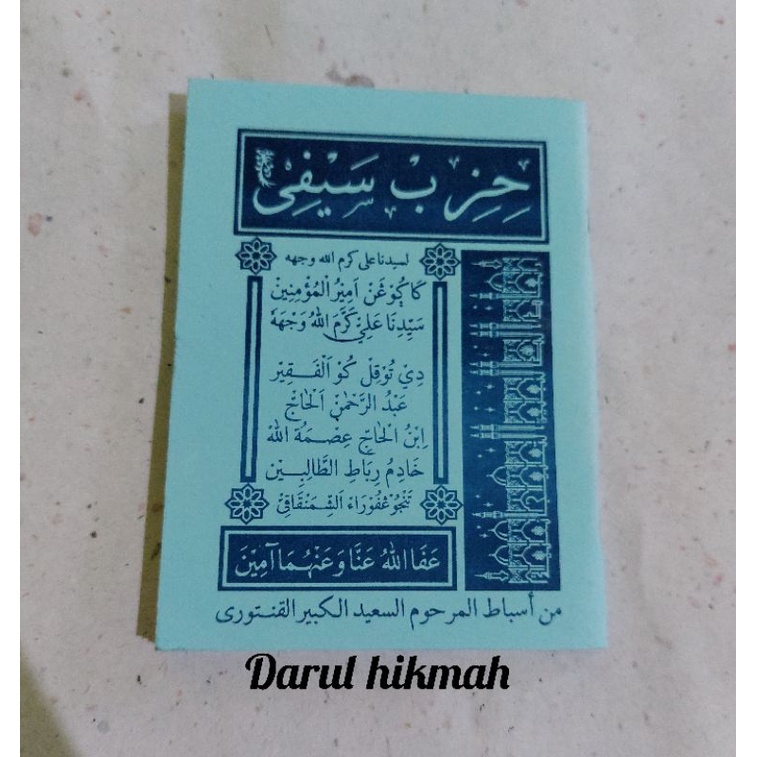 حِزِبْ سَيْفِيْ
لسيدنا علي كرم الله وجهه
كَاكُوْڠَنْ اَمِيْرُ الْمُؤْمِنِيْنَ
سَيِّدِنَا عَلِيْ كَرَّمَ اللهُ وَجْهَهُ
دِيْ تُوْقِلْ كُوْ اَلْفَـقِيْر
عَبْدُ الرَّحْمٰنْ اَلْحَاجّ
اِبْنُ الْحَاجّ عِصْمَةُ اللهْ
خَادِمُ رِبَاطِ الطَّالِبِيْن
عَفَا اللهُ عَنَّا وَعَنْهُمَا آمِيْنَ
من أسباط المرحوم السعيد الكبير القنتورى
Darul hikmah